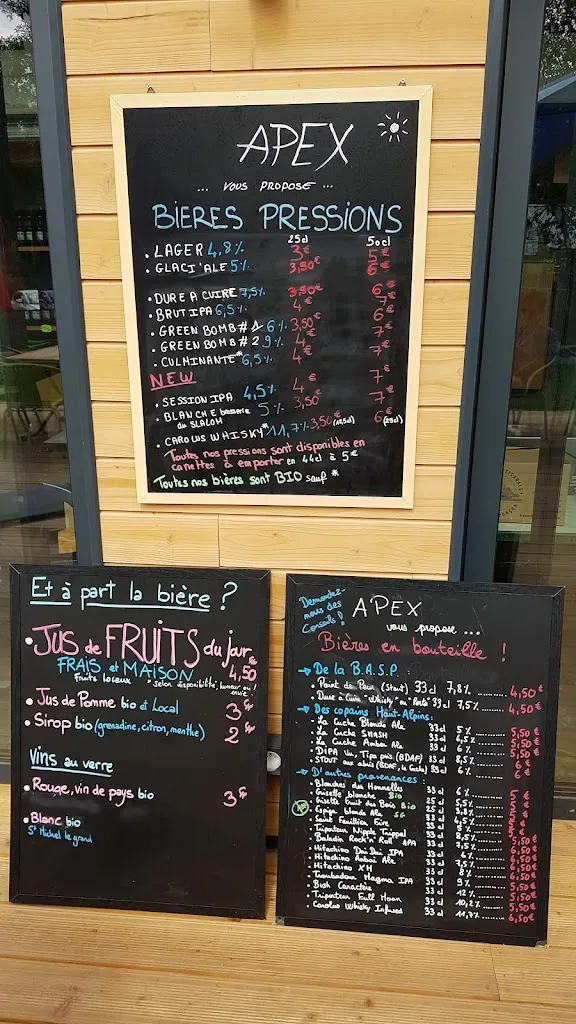 APEX
... VOUS PROPOSE ...
BIERES PRESSIONS
25cl 50cl
• LAGER 4,8% 3€ 5€
• GLACI'ALE 5% 3,50€ 6€
• DURE A CUIRE 7,5% 3,50€ 6€
• BRUT IPA 6,5% 4€ 7€
• GREEN BOMB #1 6% 3,50€ 6€
• GREEN BOMB #2 9% 4€ 7€
• CULMINANTE* 6,5% 4€ 7€
NEW
• SESSION IPA 4,5% 4€ 7€
• BLANCHE brasserie du SLALOM 5% 3,50€ 7€
• CAROLUS WHISKY* 11,7% 3,50€ 6€ (25cl)
Toutes nos pressions sont disponibles en
canettes à emporter en 44cl à 5€
Toutes nos bières sont BIO sauf *
Et à part la bière ?
• JUS de FRUITS du jour
FRAIS et MAISON 4,50€
fruits locaux
• Jus de Pomme bio et Local 3€
• Sirop bio (grenadine, citron, menthe) 2€
Vins au verre
• Rouge, vin de pays bio 3€
• Blanc bio
St Michel le grand
Demandez-
nous des
Conseils !
APEX
vous propose ...
Bières en bouteille !
→ De la B.A.S.P:
• Point de Peur (Stout) 33cl 7,8% 4,50€
• Dure à Cuire 33cl 7,5% 4,50€
→ Des copains Haut-Alpins:
• La Cuche Blonde Ale 33cl 5% 5,50€
• La Cuche SMASH 33cl 6,5% 5,50€
• La Cuche Amber Ale 33cl 6% 5,50€
• DIPA (BDAF) 33cl 6€
• STOUT 33cl 6% 6€
→ D'autres provenances:
• Blanches des Honnelles 33cl 6% 5€
• Giselle blanche Bio
• Giselle fruit des Bois Bio
• blonde Ale
• Saint Feuillien
• Triporteur Nipple Trippel
• Baladin Rock'n'Roll APA
• Hitachino Dai Dai IPA
• Hitachino Anbai Ale
• Hitachino XH
• Troubadour Magma IPA
• Bush Caractère
• Triporteur Full Moon 33cl 10,2% 5,50€
• Carolus Whisky Infused 33cl 11,7% 6,50€